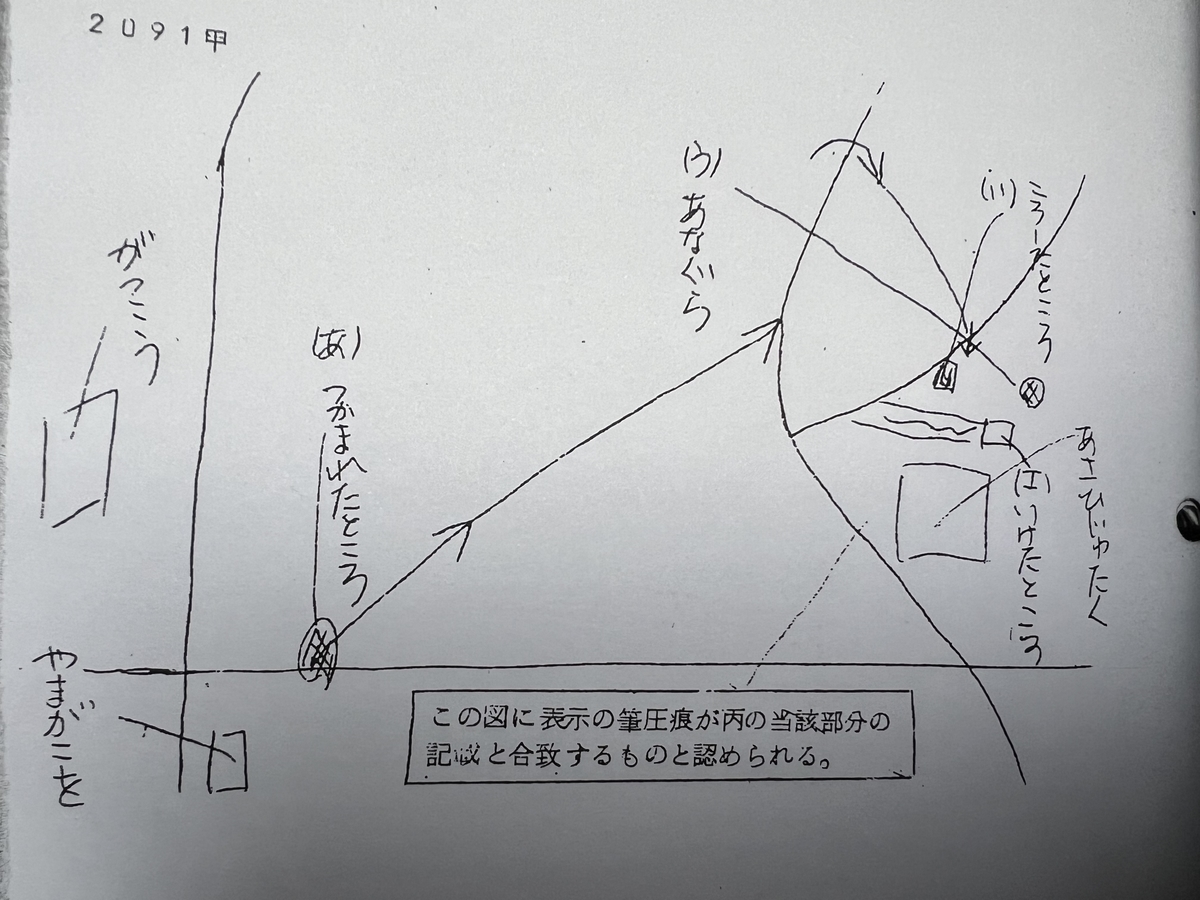 2091甲
(い)
ころしたところ
(う)
あなぐら
がっこう
(あ)
つかまれたところ
(エ)いけたところ
やまがこを
この図に表示の筆圧痕が丙の当該部分の
記載と合致するものと認められる。